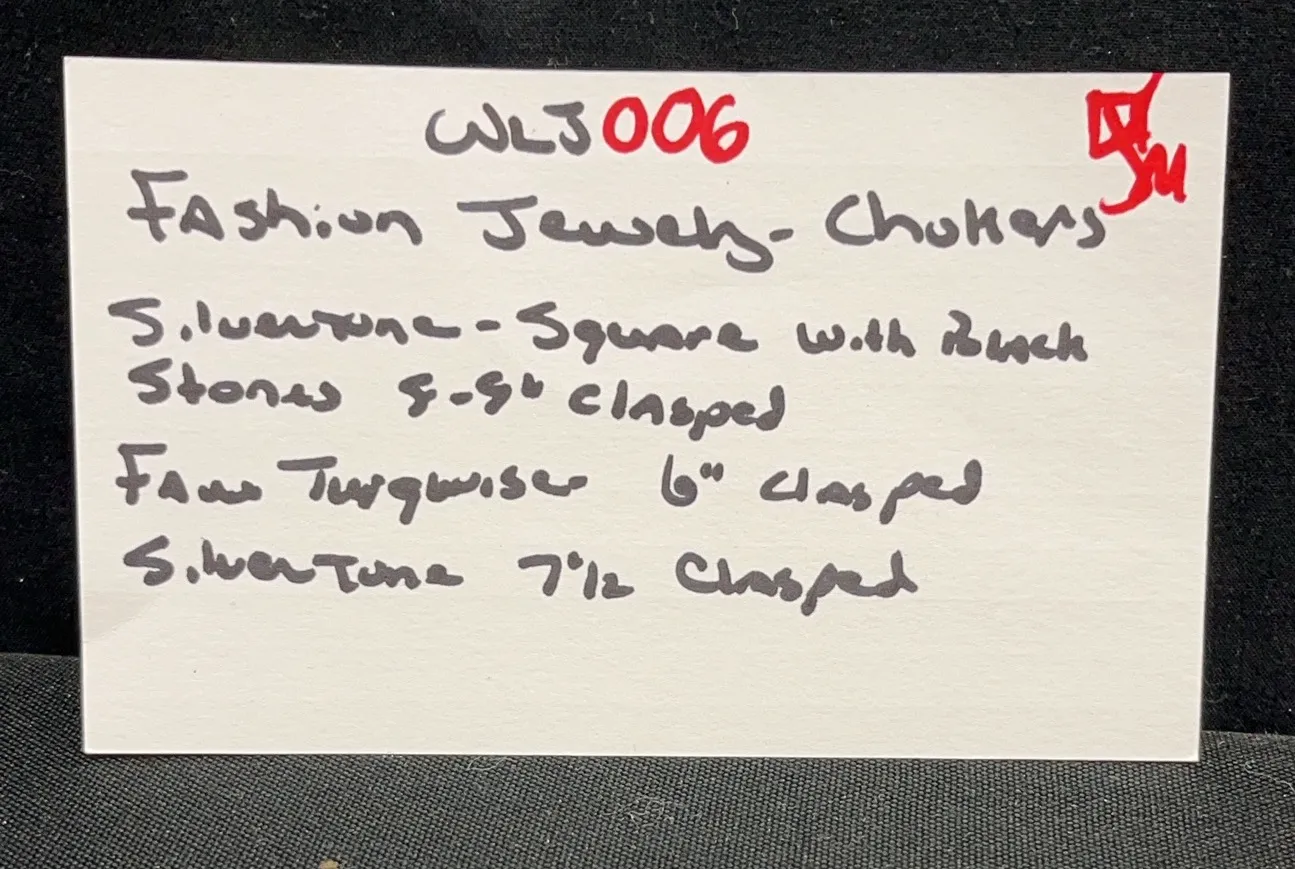 WLJ006
Fashion Jewelry - Chokers
Silvertone - Square with Black
Stones 8-9" Clasped
Faux Turquoise 6" Clasped
Silvertone 7"1/2 Clasped